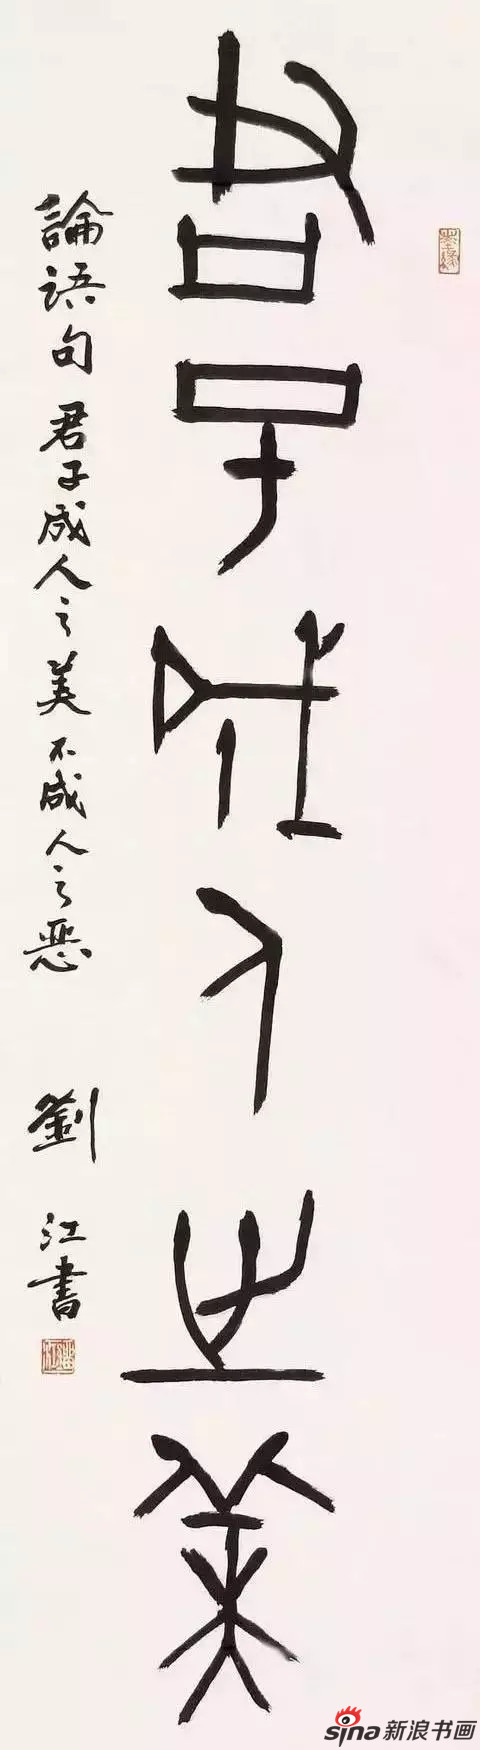 君子成人之美
論语句 君子成人之美不成人之惡 劉江書
sina新浪书画